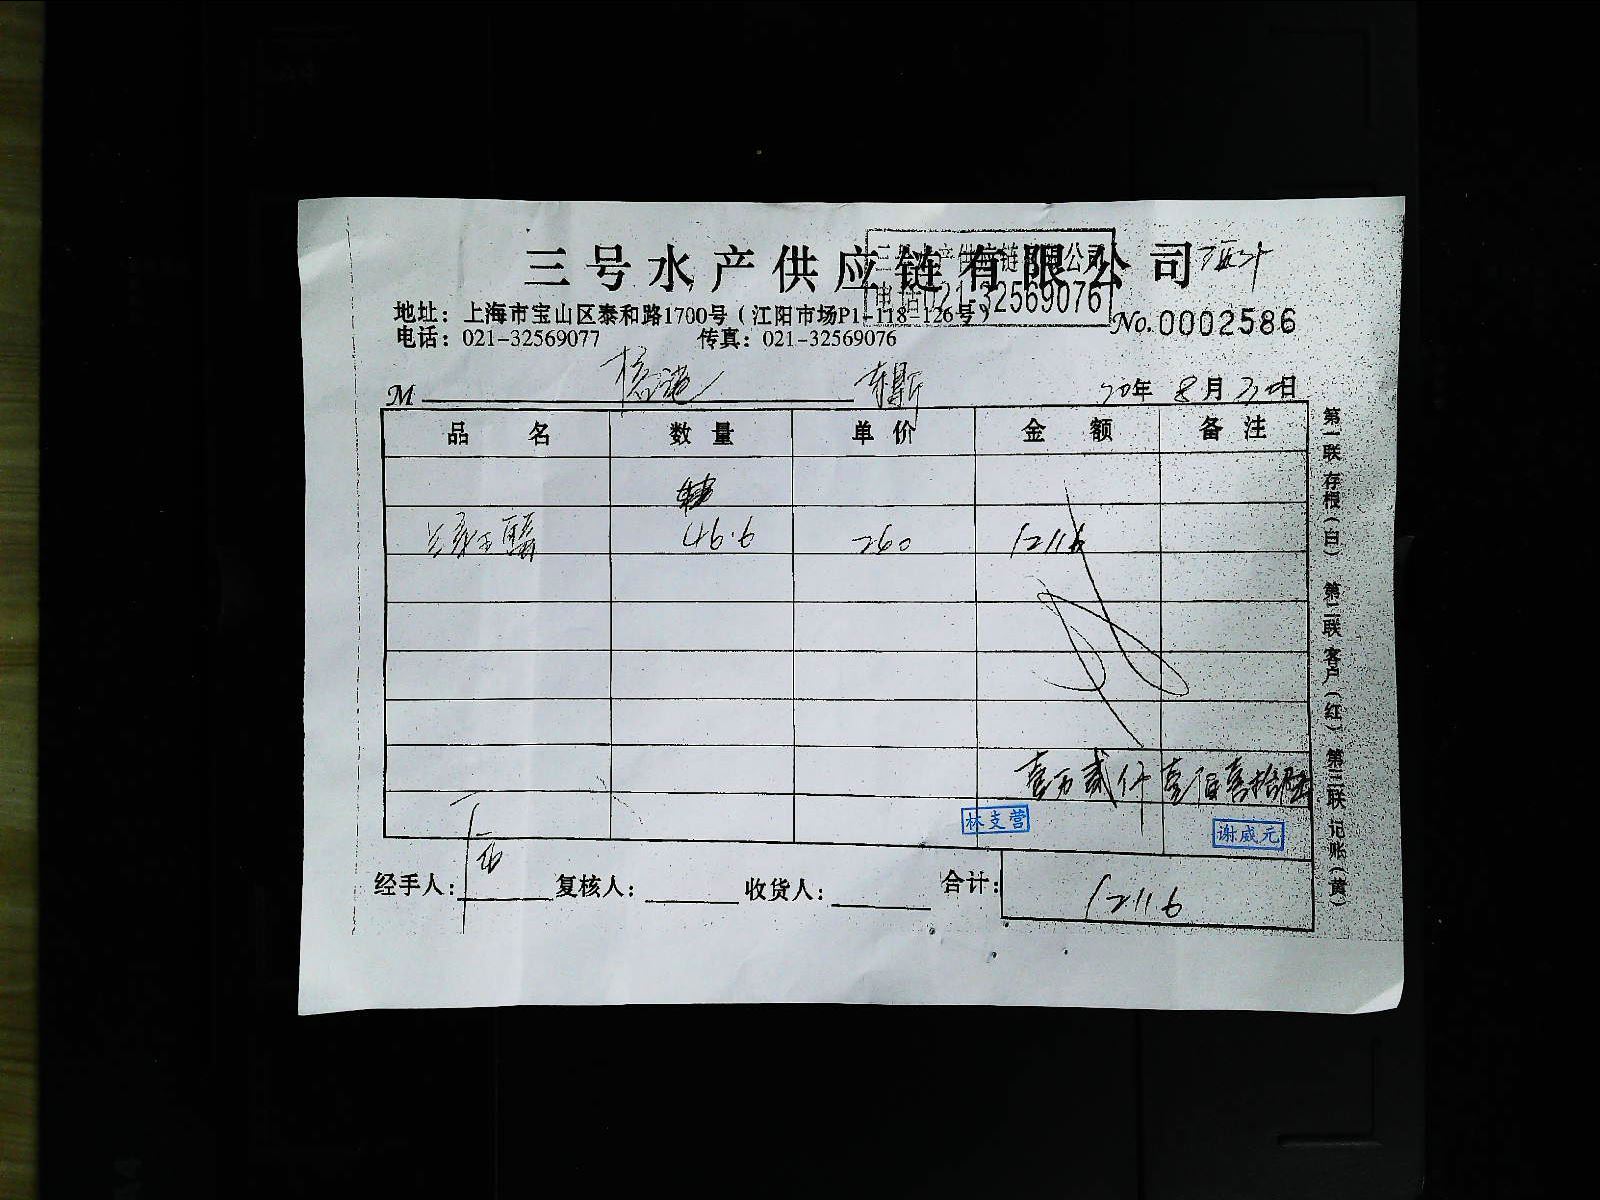 三号水产供应链有限公司
三号水产供应链有限公司
电话021-32569076
地址：上海市宝山区泰和路1700号（江阳市场P1-118-126号）
No.0002586
电话：021-32569077 传真：021-32569076
M
20年 8月30日
品 名 数 量 单 价 金 额 备 注
46.6 260 12116
壹万贰仟壹佰壹拾陆
林支营
谢威元
经手人： 复核人： 收货人： 合计： 12116
第一联 存根（白） 第二联 客户（红） 第三联 记账（黄）